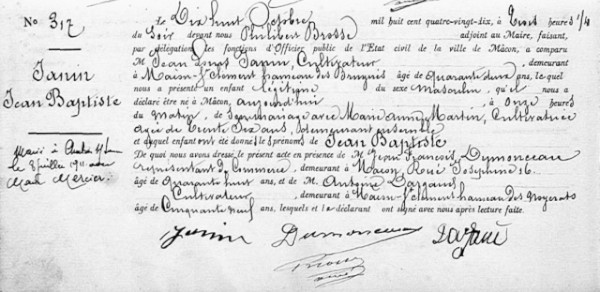 No 317
Janin
Jean Baptiste
Marié à
le 8 juillet 1911 avec
Marie Mercier.
Le Dix huit Octobre mil huit cent quatre-vingt-dix, à Trois heures 1/4
du Soir devant nous Philibert Brosse adjoint au Maire, faisant,
par délégation, les fonctions d'Officier public de l'Etat civil de la ville de Mâcon, a comparu
M Jean Louis Janin, Cultivateur, demeurant
à Macon-St Clément hameau des âgé de Quarante deux ans, lequel
nous a présenté un enfant légitime du sexe Masculin, qu'il nous a
déclaré être né à Mâcon, aujourd'hui à Onze heures
du Matin, de son mariage avec Marie Anne Martin, Cultivatrice
âgée de Trente Six ans, demeurant ensemble
et auquel enfant ont été donnés les prénoms de Jean Baptiste
De quoi nous avons dressé le présent acte en présence de M Jean François Dumonceau
représentant de Commerce, demeurant à Macon, Rue Joséphine 16.
âgé de Quarante huit ans, et de M. Antoine
Cultivateur, demeurant à Macon-St Clément hameau des Noyerats
âgé de Cinquante neuf ans, lesquels et le déclarant ont signé avec nous après lecture faite.
Janin Dumonceau